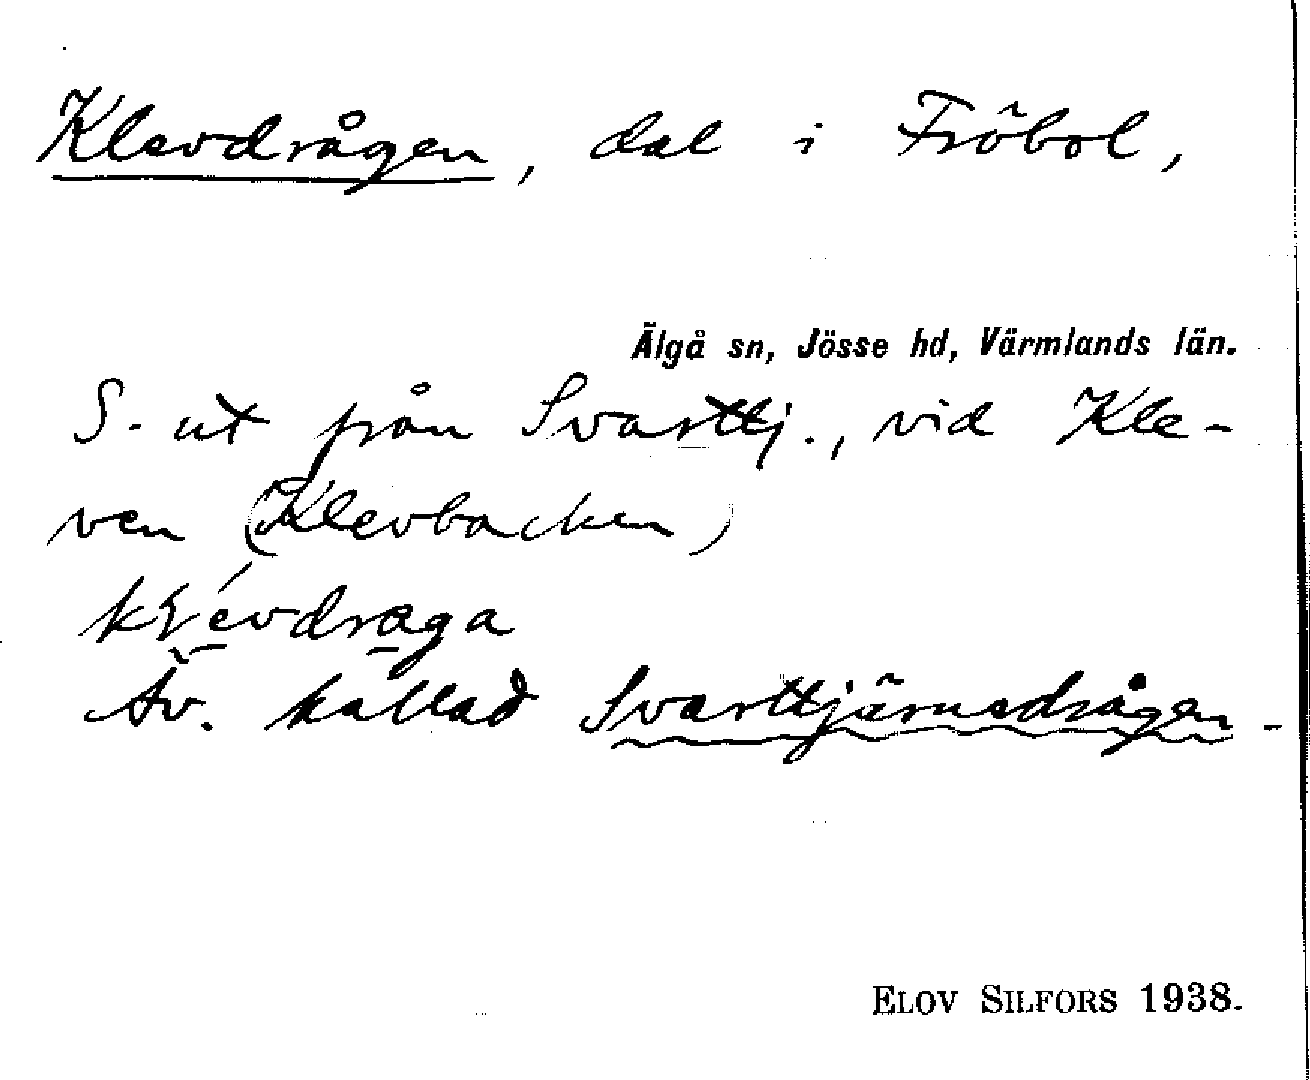 Klevdrågen, dal i Fröbol,
Älgå sn, Jösse hd, Värmlands län.
S. ut från Svarttj., vid Kle-
ven (Klevbacken)
Äv. kallad Svarttjärnsdrågen.
ELOV SILFORS 1938.